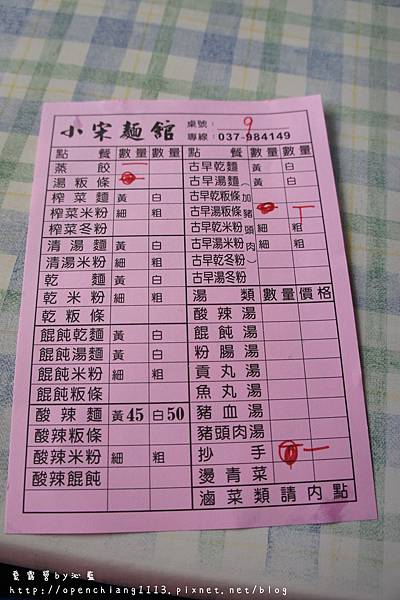 小宋麵館 桌號: 9
專線: 037-984149
點餐 數量 數量
蒸餃 一
湯粄條
榨菜麵 黃 白
榨菜米粉 細 粗
榨菜冬粉
清湯麵 黃 白
清湯米粉 細 粗
乾麵 黃 白
乾米粉 細 粗
乾粄條
餛飩乾麵 黃 白
餛飩湯麵 黃 白
餛飩米粉 細 粗
餛飩粄條
酸辣麵 黃45 白50
酸辣粄條
酸辣米粉 細 粗
酸辣餛飩
點餐 數量 數量
古早乾麵 黃 白
古早湯麵 黃 白
古早乾粄條
古早湯粄條
古早乾米粉 細 粗
古早湯米粉 細 粗
古早乾冬粉
古早湯冬粉
(加豬頭肉)
湯類 數量 價格
酸辣湯
餛飩湯
粉腸湯
貢丸湯
魚丸湯
豬血湯
豬頭肉湯
抄手 一
燙青菜
滷菜類請內點
愛露營by沁藍
http://openchiang1113.pixnet.net/blog